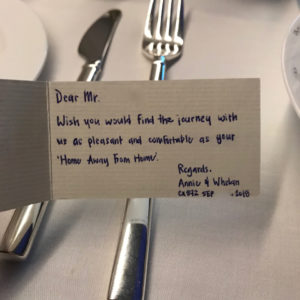 Dear Mr.
Wish you would find the journey with
us as pleasant and comfortable as your
'Home Away From Home'.
Regards.
Annie &
CX872 SEP 2018